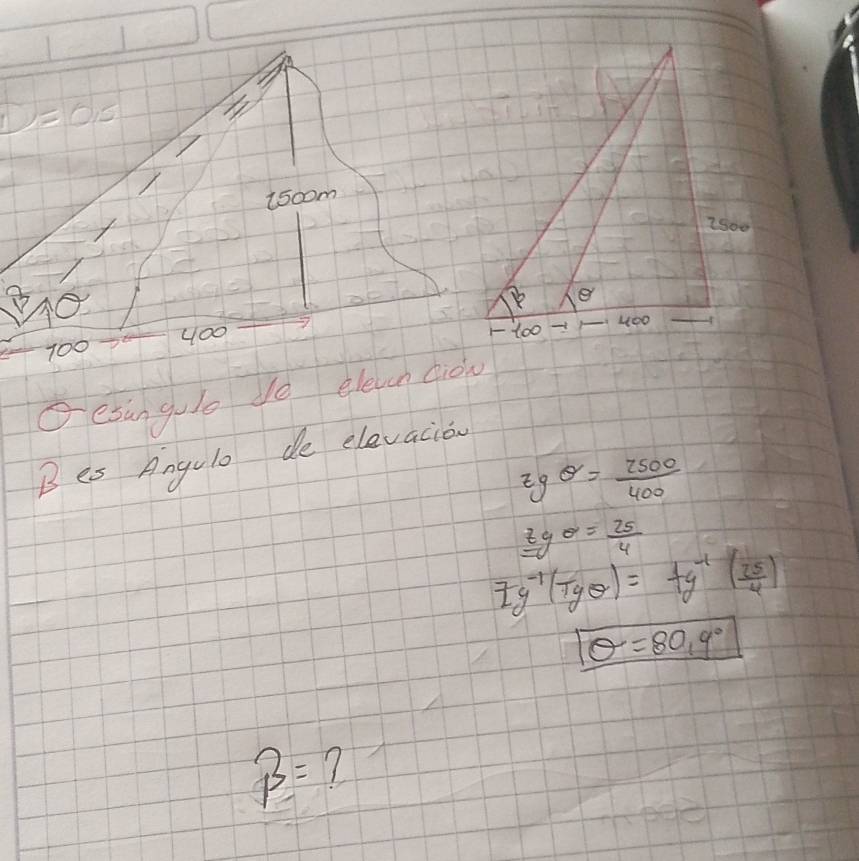 D=0,5
2500m
2500
β θ
β θ
100 400
100 400
θ es ángulo de elevación
B es Angulo de elevación
tg θ = 2500/400
tg θ = 25/4
Tg⁻¹(Tgθ) = tg⁻¹(25/4)
θ=80,9°
β=?